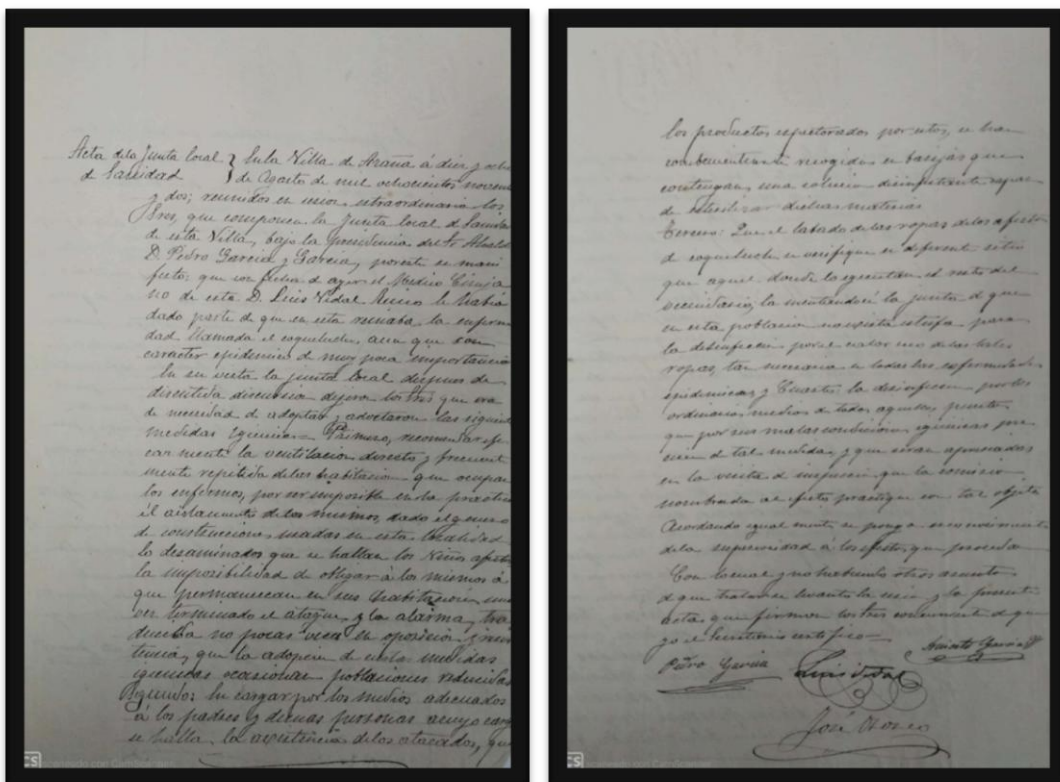 Acta de la Junta local
de Sanidad
En la Villa de Arona á diez y ocho
de Agosto de mil ochocientos noventa
y dos; reunidos en sesion extraordinaria los
Sres. que componen la Junta local d Sanidad
de esta Villa, bajo la presidencia del Sr Alcalde
D. Pedro Garcia y Garcia, por este se mani
festo: que con fecha d ayer el Medico Ciruja
no de esta D. Luis Vidal le habia
dado parte de que en esta reinaba la enferme
dad llamada el coqueluche, aun que con
caracter epidemico de muy poca importancia
En su vista la junta local despues de
discutida discusion dijeron los tres que era
de necesidad de adoptar y adoptaron las siguientes
medidas igienicas = Primero, recomendar efi
caz mente la ventilacion directa y frecuente
mente repitida de las habitacion que ocupan
los enfermos, por ser imposible en la practica
el aislamiento de los mismos, dado el genero
de construcciones usadas en esta localidad
lo desaminados que se hallan los Niños
la imposibilidad de obligar á los mismos á
que permanezcan en sus habitacion una
vez terminado el ataque, y la alarma, tra
ducida no pocas veces en oposicion y resis
tencia, que la adopcion de estas medidas
igienicas ocasionan poblaciones reducidas
Segundo: Encargar por los medios adecuados
á los padres y demas personas a cuyo cargo
se halla, la asistencia de los atacados, que
los productos espectorados por estos, se han
convenientemente recogidos en basijas que
contengan una solucion disinfectante capaz
de esterilizar dichas materias
Tercero: Que el labado de las ropas de los
d coqueluche se verifique en diferente sitio
que aquel donde lo egecutan el resto del
vecindario, lo entendiendo la junta d que
en esta poblacion no exista estufa para
la desinfeccion por el calor seco de las tales
ropas, tan necesaria en todas las enfermedades
epidemicas, y Cuarto: la desinfeccion por los
ordinarios medios de todos aquellos puntos
que por sus malas condiciones igienicas pre
cisen d tal medida, y que seran apreciadas
en la visita d inspeccion que la comision
nombrada al efecto practique con tal objeto
Acordando igual mente se ponga en conocimiento
de la superioridad á los efectos que proceda
Con lo cual y no habiendo otros asuntos
d que tratar se levanta la sesion y la presente
acta, que firman los tres concurrentes d que
yo el Secretario certifico =
Pedro Garcia
Luis Vidal
José
CS